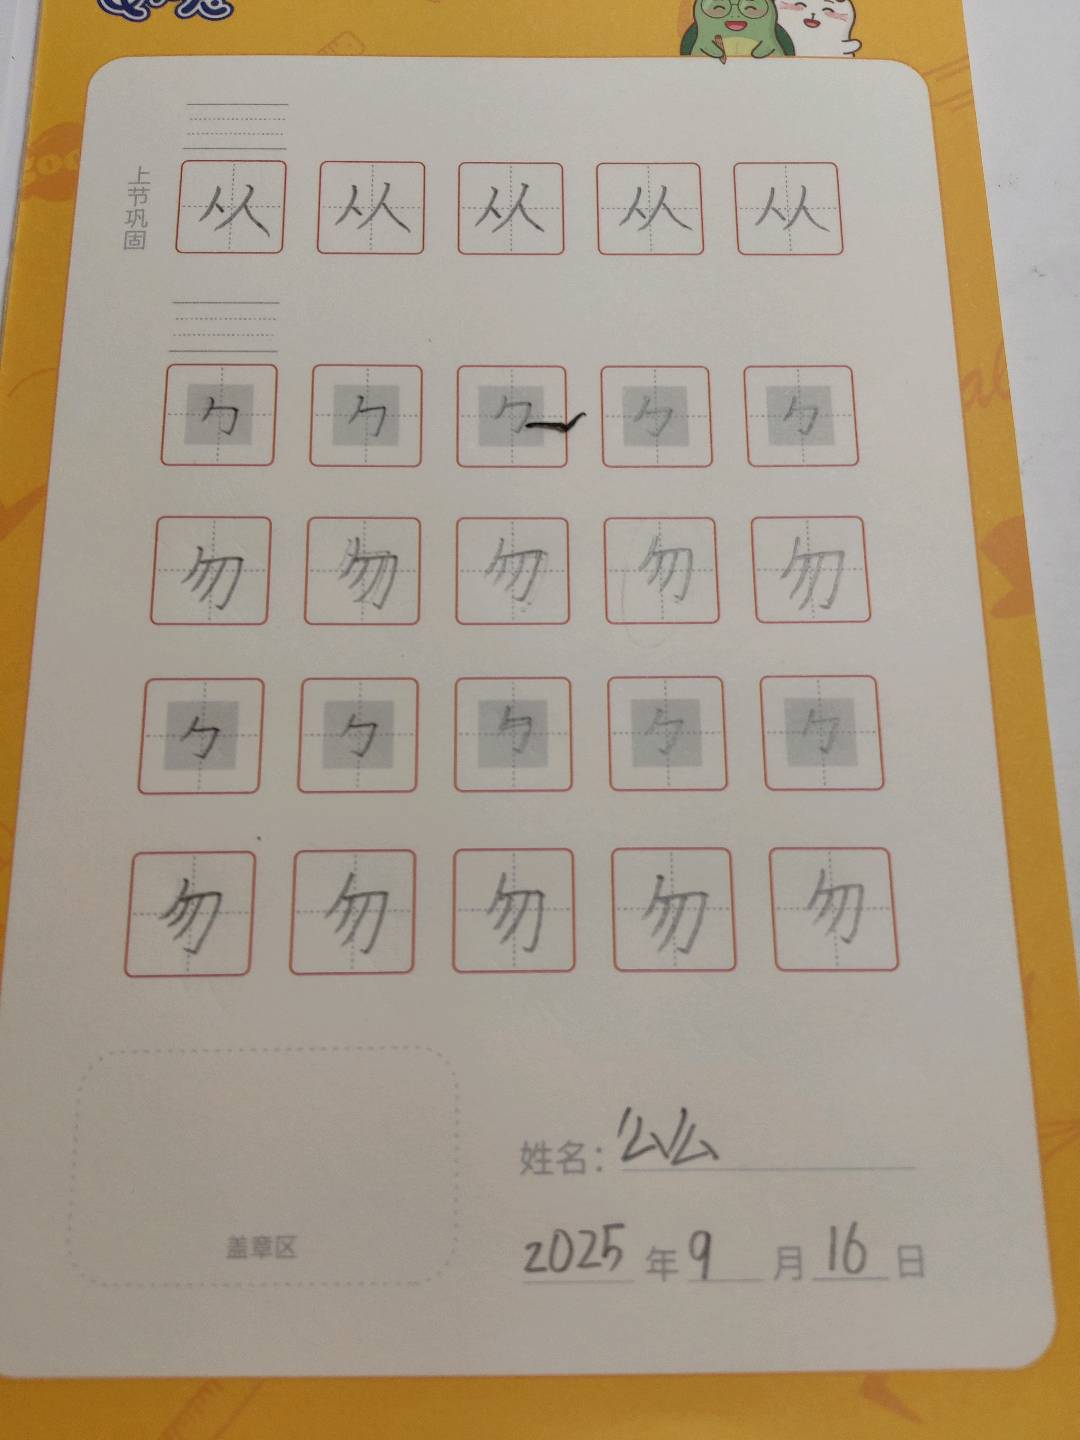 上节巩固
从 从 从 从 从
勹 勹 勹 勹 勹
勿 勿 勿 勿 勿
勹 勹 勹 勹 勹
勿 勿 勿 勿 勿
姓名：么么
盖章区
2025 年 9 月 16 日